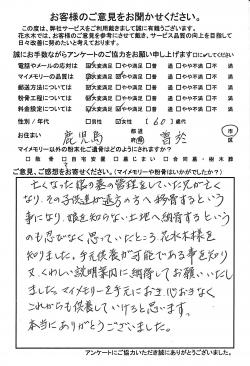 お客様のご意見をお聞かせください。
この度は、弊社サービスをご利用戴きまして誠に有難うございます。
花水木では、お客様のご意見を参考にさせて戴き、サービス品質の向上を目指して
日々改善に努めたいと考えております。
誠にお手数ながらアンケートのご協力をお願い申し上げます
電話やメールの応対は 大変満足 やや満足 普 通 やや不満 不 満
マイメモリーの品質は 大変満足 やや満足 普 通 やや不満 不 満
郵送方法について 大変満足 やや満足 普 通 やや不満 不 満
粉骨工程について 大変満足 やや満足 普 通 やや不満 不 満
価格設定について 大変満足 やや満足 普 通 やや不満 不 満
性別/年代 男 性 女 性 (60)歳代
お住まい 鹿児島 都道府県 曽於 市区
マイメモリー以外の粉末化ご遺骨はどのようにされますか?
散 骨 自宅安置 墓じまい 合同墓・樹木葬
ご意見、ご感想をお寄せください。(マイメモリーや粉骨はいかがでしたか?)
亡くなった姉の墓の管理をしていた兄が亡く
なり その子供達が遠方の方へ移骨するという
事になり 娘を知らない土地へ納骨するという
のも忍びなく思っていたところ花水木様を
知りました。手元供養が可能である事を知り
又、くわしい説明案内に納得してお願いいたし
ました。マイメモリーを手元におき 心おきなく
これからも供養していけると思います。
本当にありがとうございました。
アンケートにご協力いただき誠にありがとうございました。